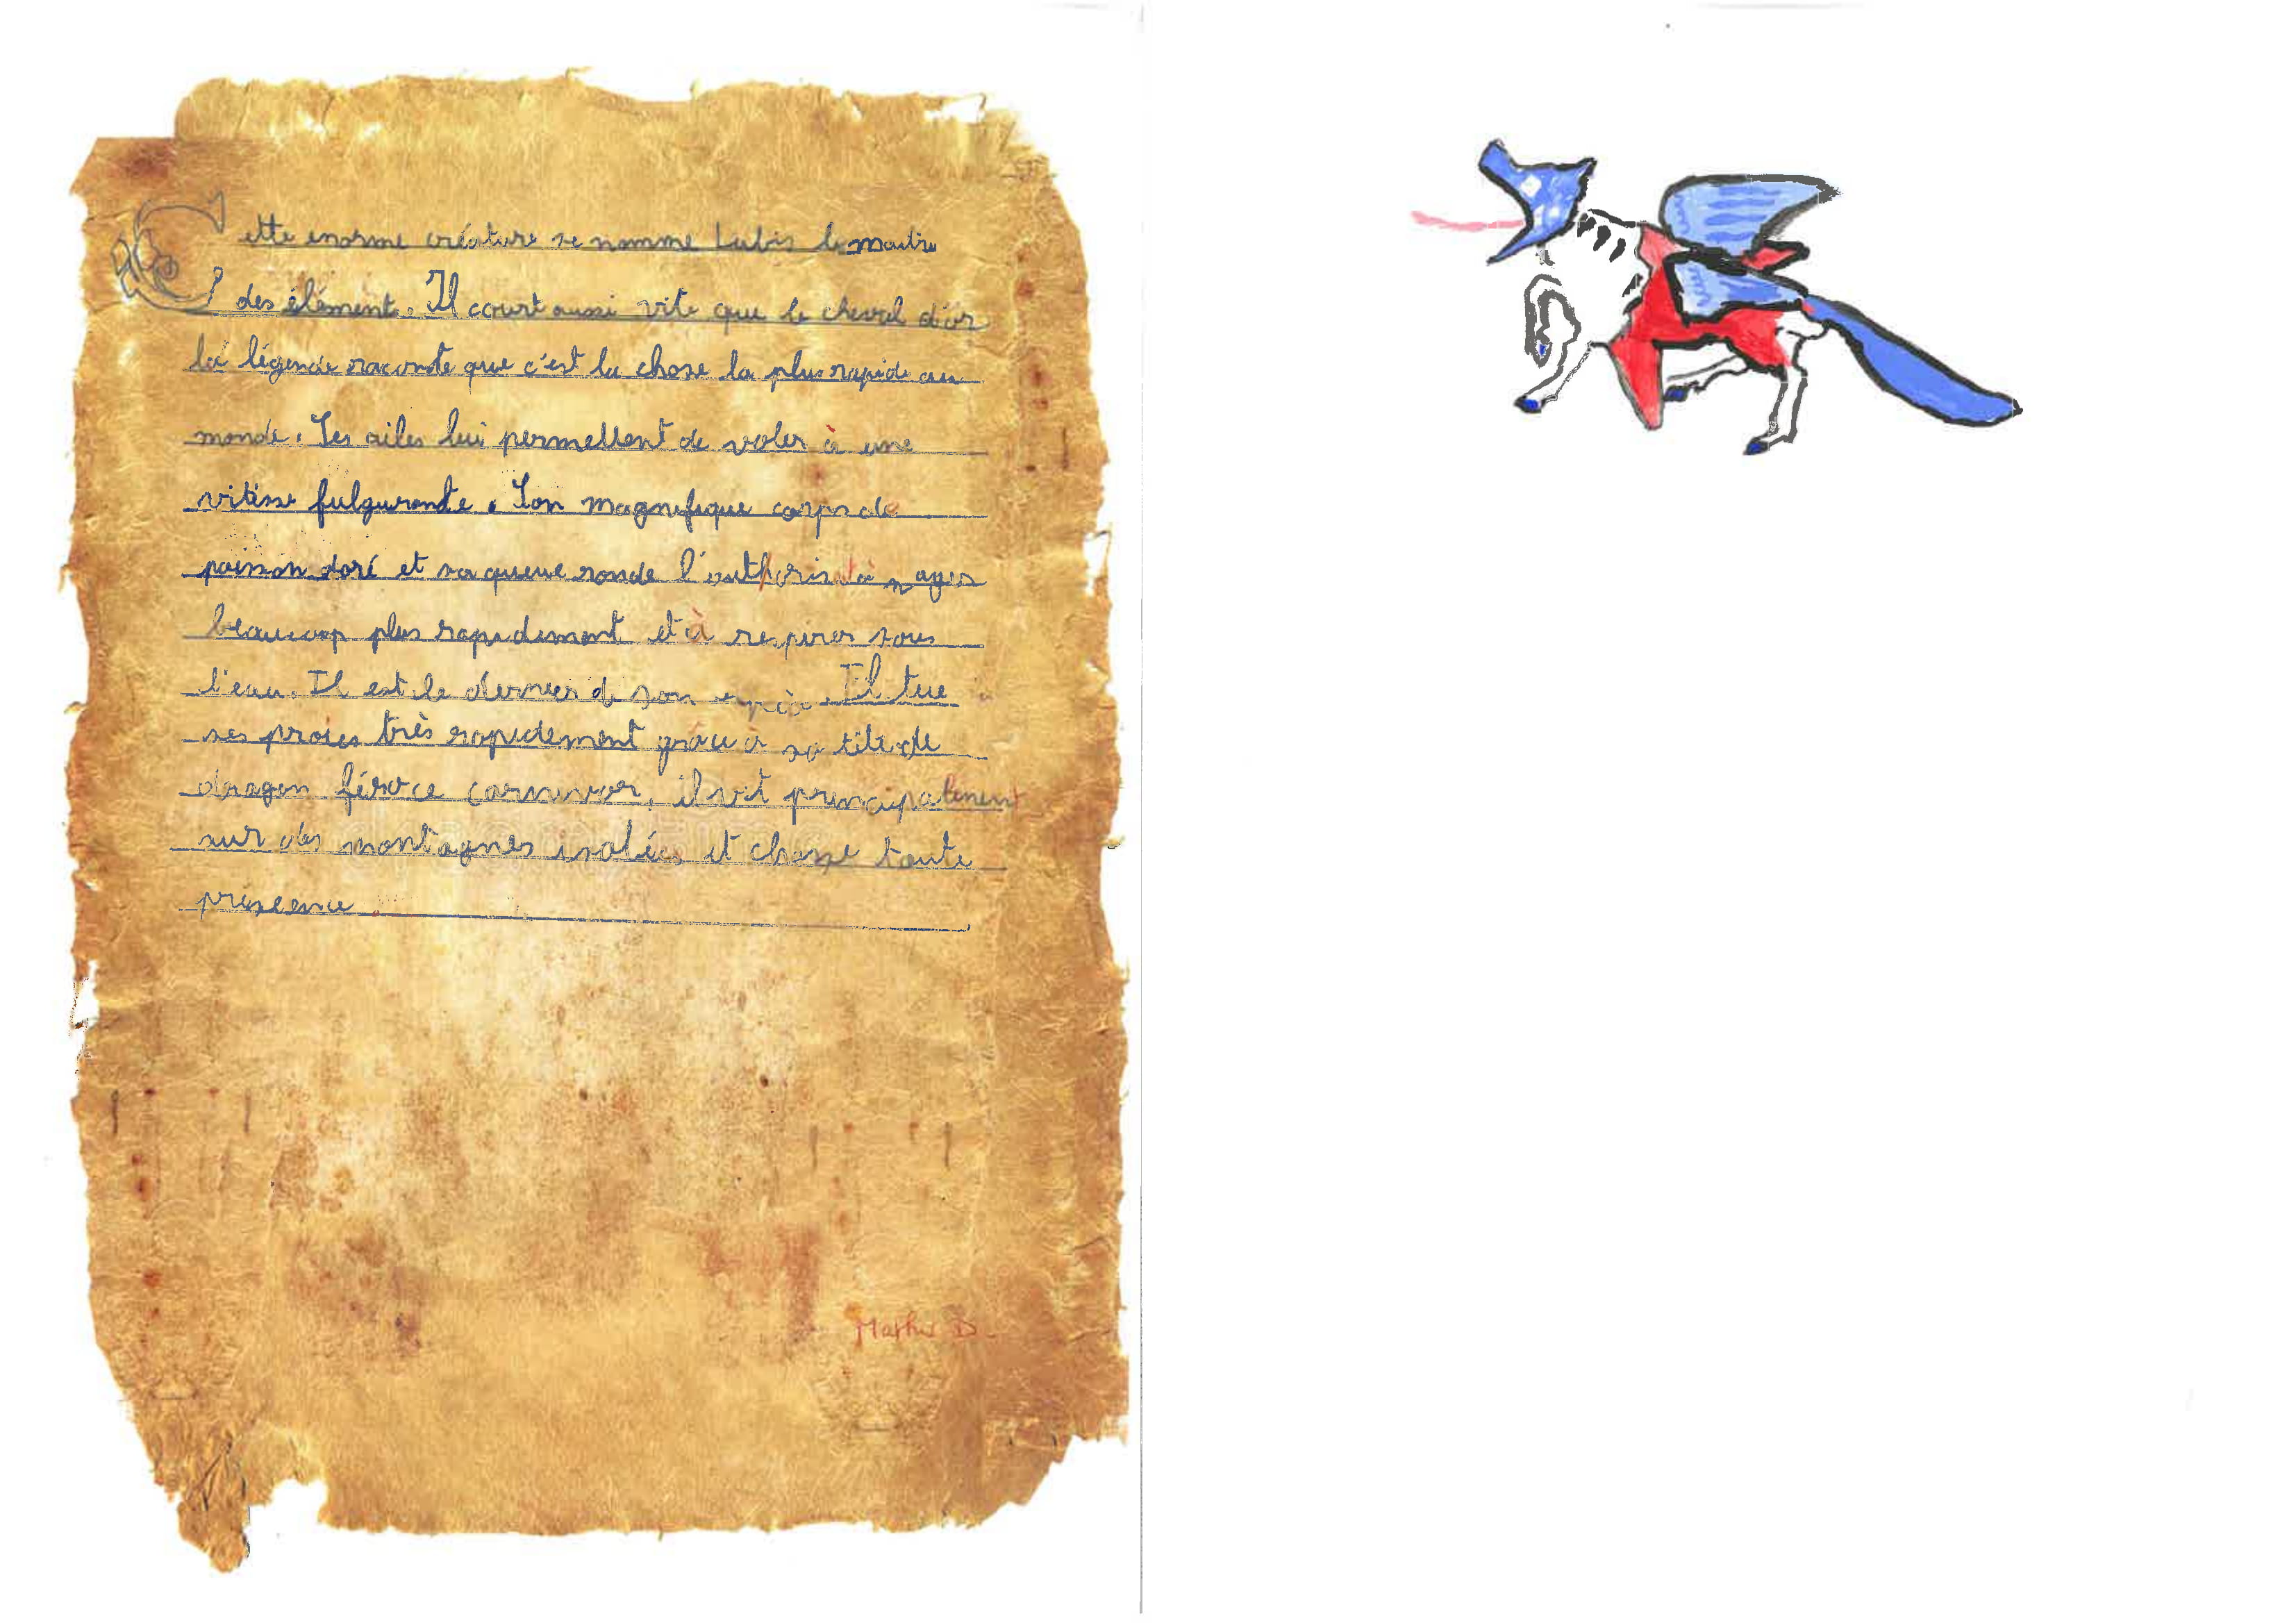 Cette enorme créature se nomme Lubis le maitre
des élément. Il court aussi vite que le cheval d'or
la légende raconte que c'est la chose la plus rapide au
monde. Ses ailes lui permettent de voler à une
vitesse fulgurante. Son magnifique corps de
poisson doré et sa queue ronde l'authorise à nager
beaucoup plus rapidement et à respirer sous
l'eau. Il est le dernier de son espèce. Il tue
ses proies très rapidement grâce à sa tête de
dragon féroce carnivor, il vit principalement
sur des montagnes isolées et chasse toute
présence
D.